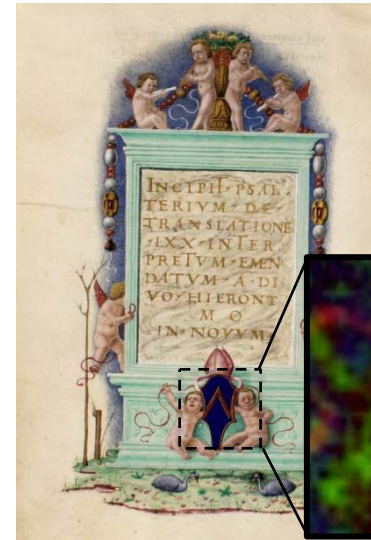 INCIPIT·PSAL
TERIVM·DE·
TRANSLATIONE
·LXX·INTER
PRETVM·EMEN
DATVM·A·DI
VO·HIERONY
M O
IN·NOVVM